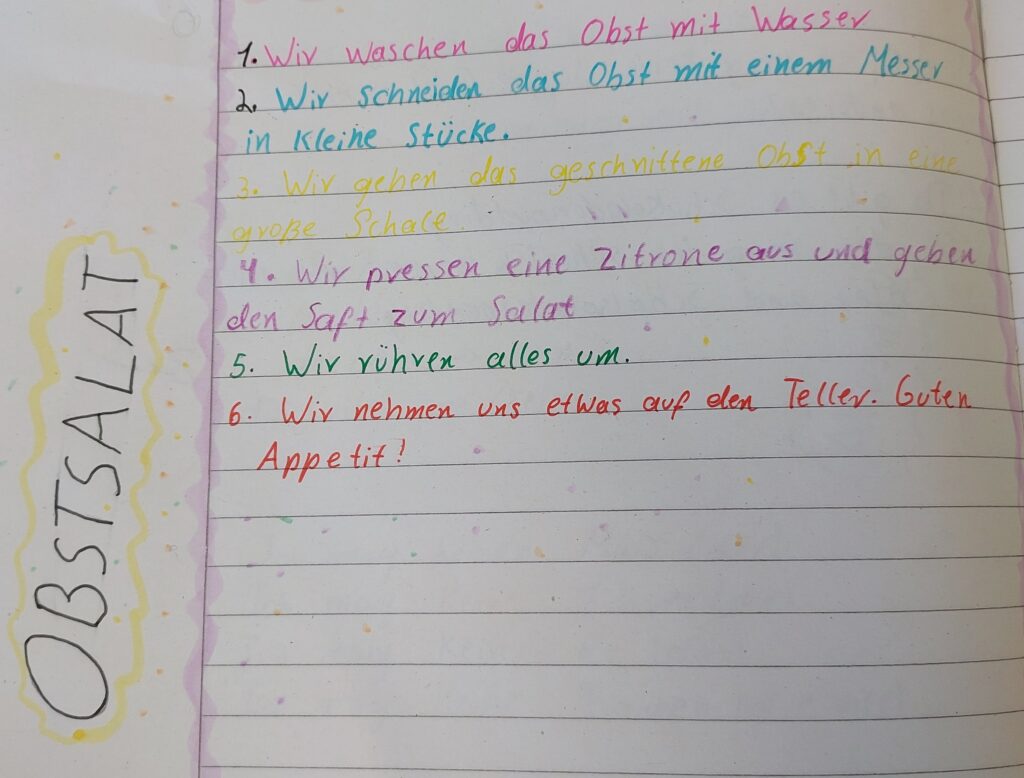 OBSTSALAT
1. Wir waschen das Obst mit Wasser
2. Wir schneiden das Obst mit einem Messer
in kleine Stücke.
3. Wir geben das geschnittene Obst in eine
große Schale.
4. Wir pressen eine Zitrone aus und geben
den Saft zum Salat
5. Wir rühren alles um.
6. Wir nehmen uns etwas auf den Teller. Guten
Appetit!